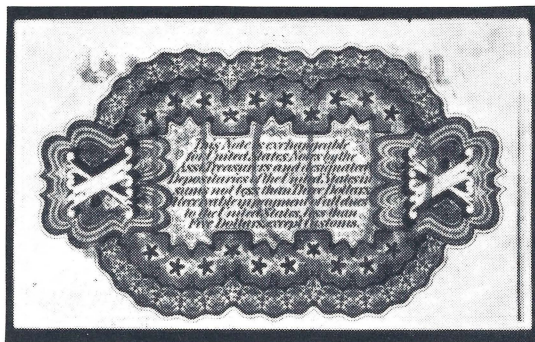 This Note is exchangeable
for United States Notes by the
Asst. Treasurers and designated
Depositaries of the United States in
sums not less than Three Dollars.
Receivable in payment of all dues
to the United States, less than
Five Dollars, except Customs.